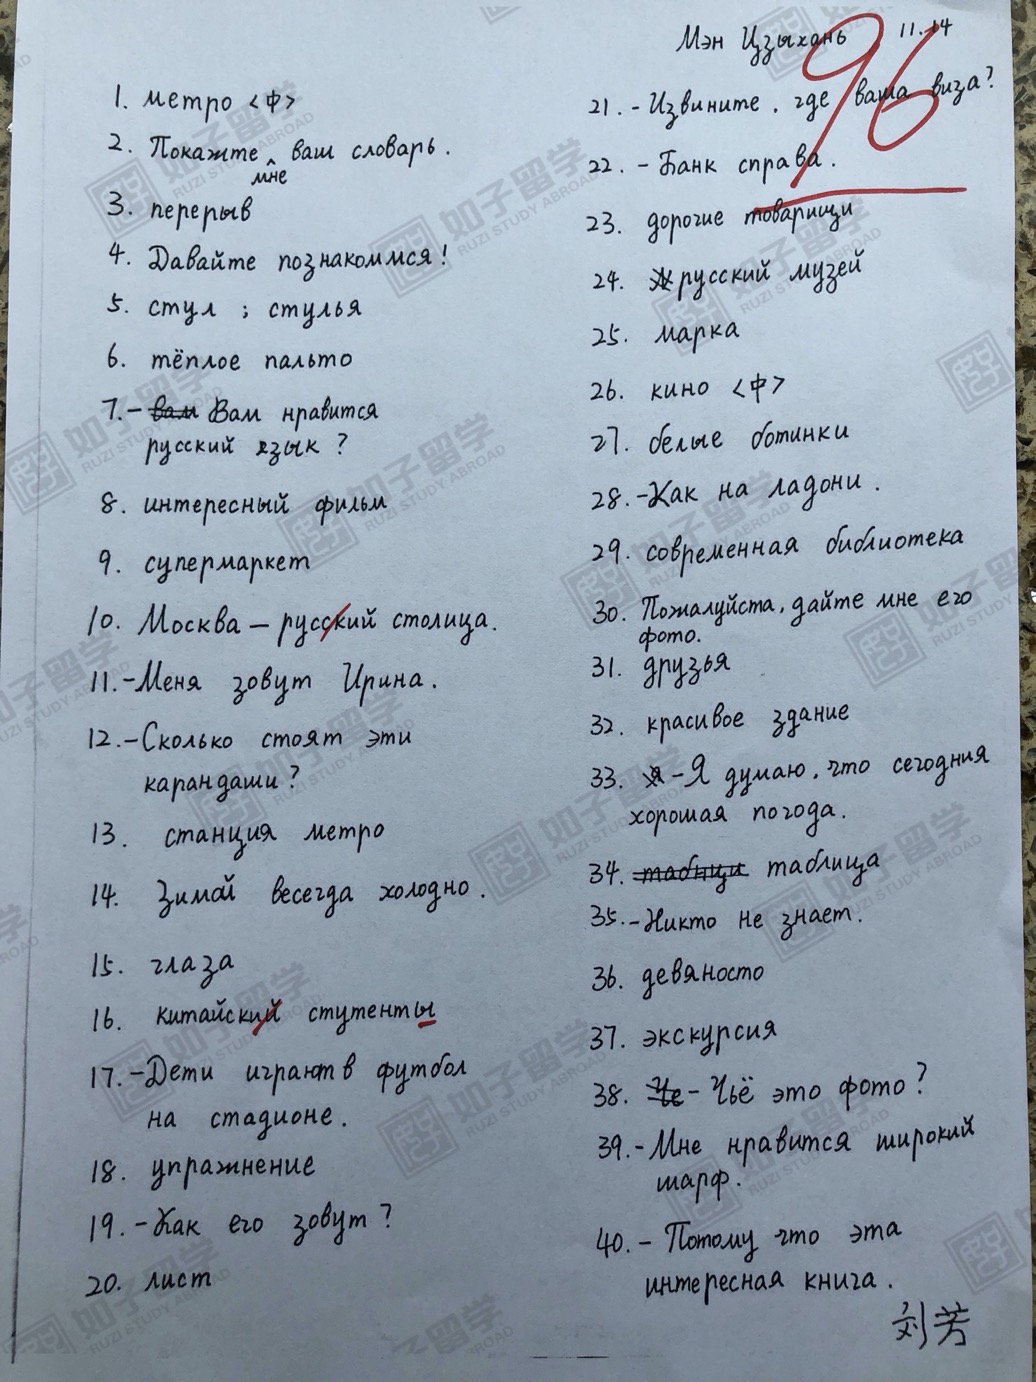 Мэн Цзыхань 11.14
96
1. метро <中>
2. Покажите ваш словарь.
мне
3. перерыв
4. Давайте познакоммся!
5. стул ; стулья
6. тёплое пальто
7.- вам Вам нравится
русский язык ?
8. интересный фильм
9. супермаркет
10. Москва — русский столица.
11.-Меня зовут Ирина.
12.-Сколько стоят эти
карандаши?
13. станция метро
14. Зимой весегда холодно.
15. глаза
16. китайский стутенты
17.-Дети играют в футбол
на стадионе.
18. упражнение
19.-Как его зовут?
20. лист
21.-Извините, где ваша виза?
22.-Банк справа.
23. дорогие товарищи
24. русский музей
25. марка
26. кино <中>
27. белые ботинки
28.-Как на ладони.
29. современная библиотека
30. Пожалуйста, дайте мне его
фото.
31. друзья
32. красивое здание
33. я -Я думаю, что сегодня
хорошая погода.
34. таблица
35.-Никто не знает.
36. девяносто
37. экскурсия
38. Че - Чьё это фото?
39.-Мне нравится широкий
шарф.
40.- Потому что эта
интересная книга.
刘芳
如子留学
RUZI STUDY ABROAD